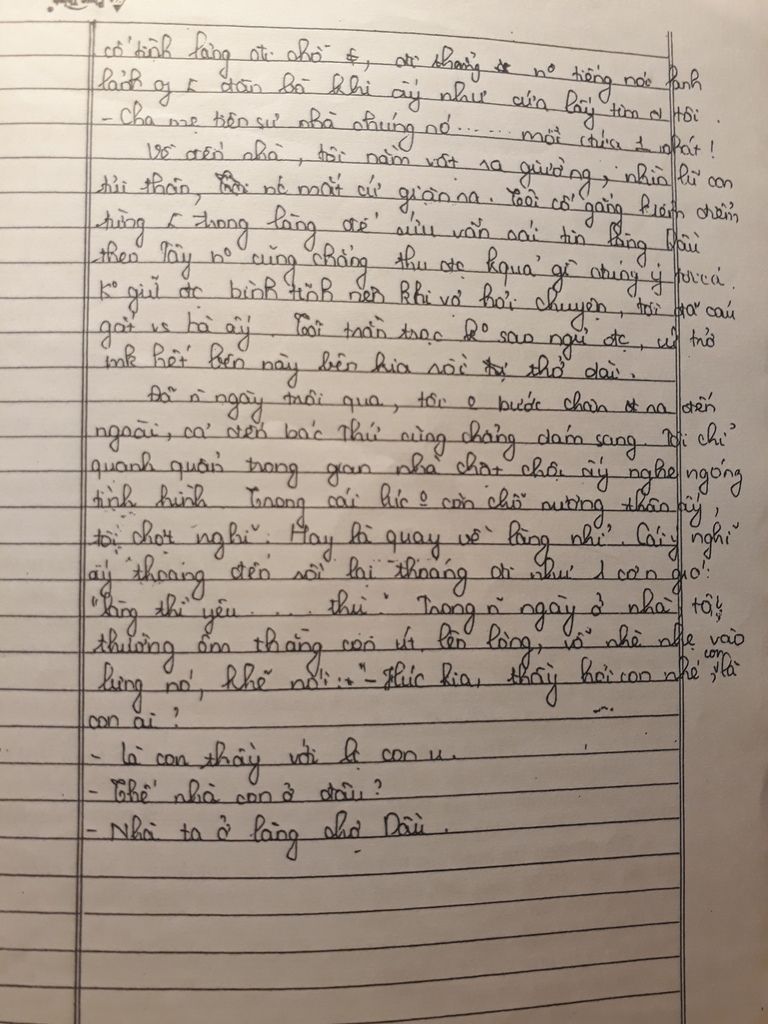 cố tình lảng đi chỗ ≠, đi thẳng nº tiếng nói lanh
lảnh of đàn bà khi ấy như cứa lấy tim tôi.
- Cha mẹ tiên sư nhà chúng nó ....... một nhát!
Về đến nhà, tôi nằm vật ra giường, nhìn lũ con
tủi thân, nc mắt cứ giàn ra. Tôi cố gắng kiểm điểm
từng trong làng để cứu vãn cái tin làng Dầu
theo Tây nº cũng chẳng thu đc kquả gì đúng ý tôi cả.
Kº giữ đc bình tĩnh nên khi vợ hỏi chuyện, tôi đã cáu
gắt vs bà ấy. Tôi trằn trọc kº sao ngủ đc, cứ trở
mk hết bên này bên kia rồi thở dài.
Đã n ngày trôi qua, tôi º bước chân ra đến
ngoài, cả đến bác Thứ cũng chẳng dám sang. Tôi chỉ
quanh quẩn trong gian nhà chật chội ấy nghe ngóng
tình hình Trong cái lúc º còn chỗ nương thân ấy,
tôi chợt nghĩ: Hay là quay về làng nhỉ. Cái ý nghĩ
ấy thoáng đến rồi lại thoáng đi như 1 cơn gió:
"Làng thì yêu .... thù." Trong n ngày ở nhà tôi,
thường ôm thằng con út lên lòng, vỗ nhè nhẹ vào
lưng nó, khẽ nói: "- Húc kia, thầy hỏi con nhé, con là
con ai?
- là con thầy với con u.
- Thế nhà con ở đâu?
- Nhà ta ở làng chợ Dầu.